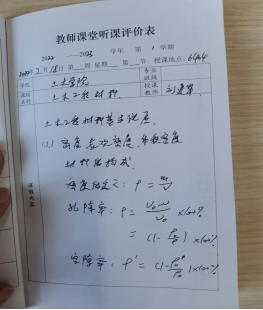 教师课堂听课评价表
2022——2023 学年 第 1 学期
2022年 月18日第 周 星期 第 节 授课地点:6404
学院 土木学院 专业班级
课程名称 土木工程材料 授课教师 刘
土木工程材料基本性质
1.1 密度 表观密度 堆积密度
材料的构成
密度的定义: ρ = m/v
孔隙率: P = (V₀-V)/V₀ ×100%
= (1-ρ₀/ρ)×100%
空隙率: P' = (1-ρ₀'/ρ₀)×100%